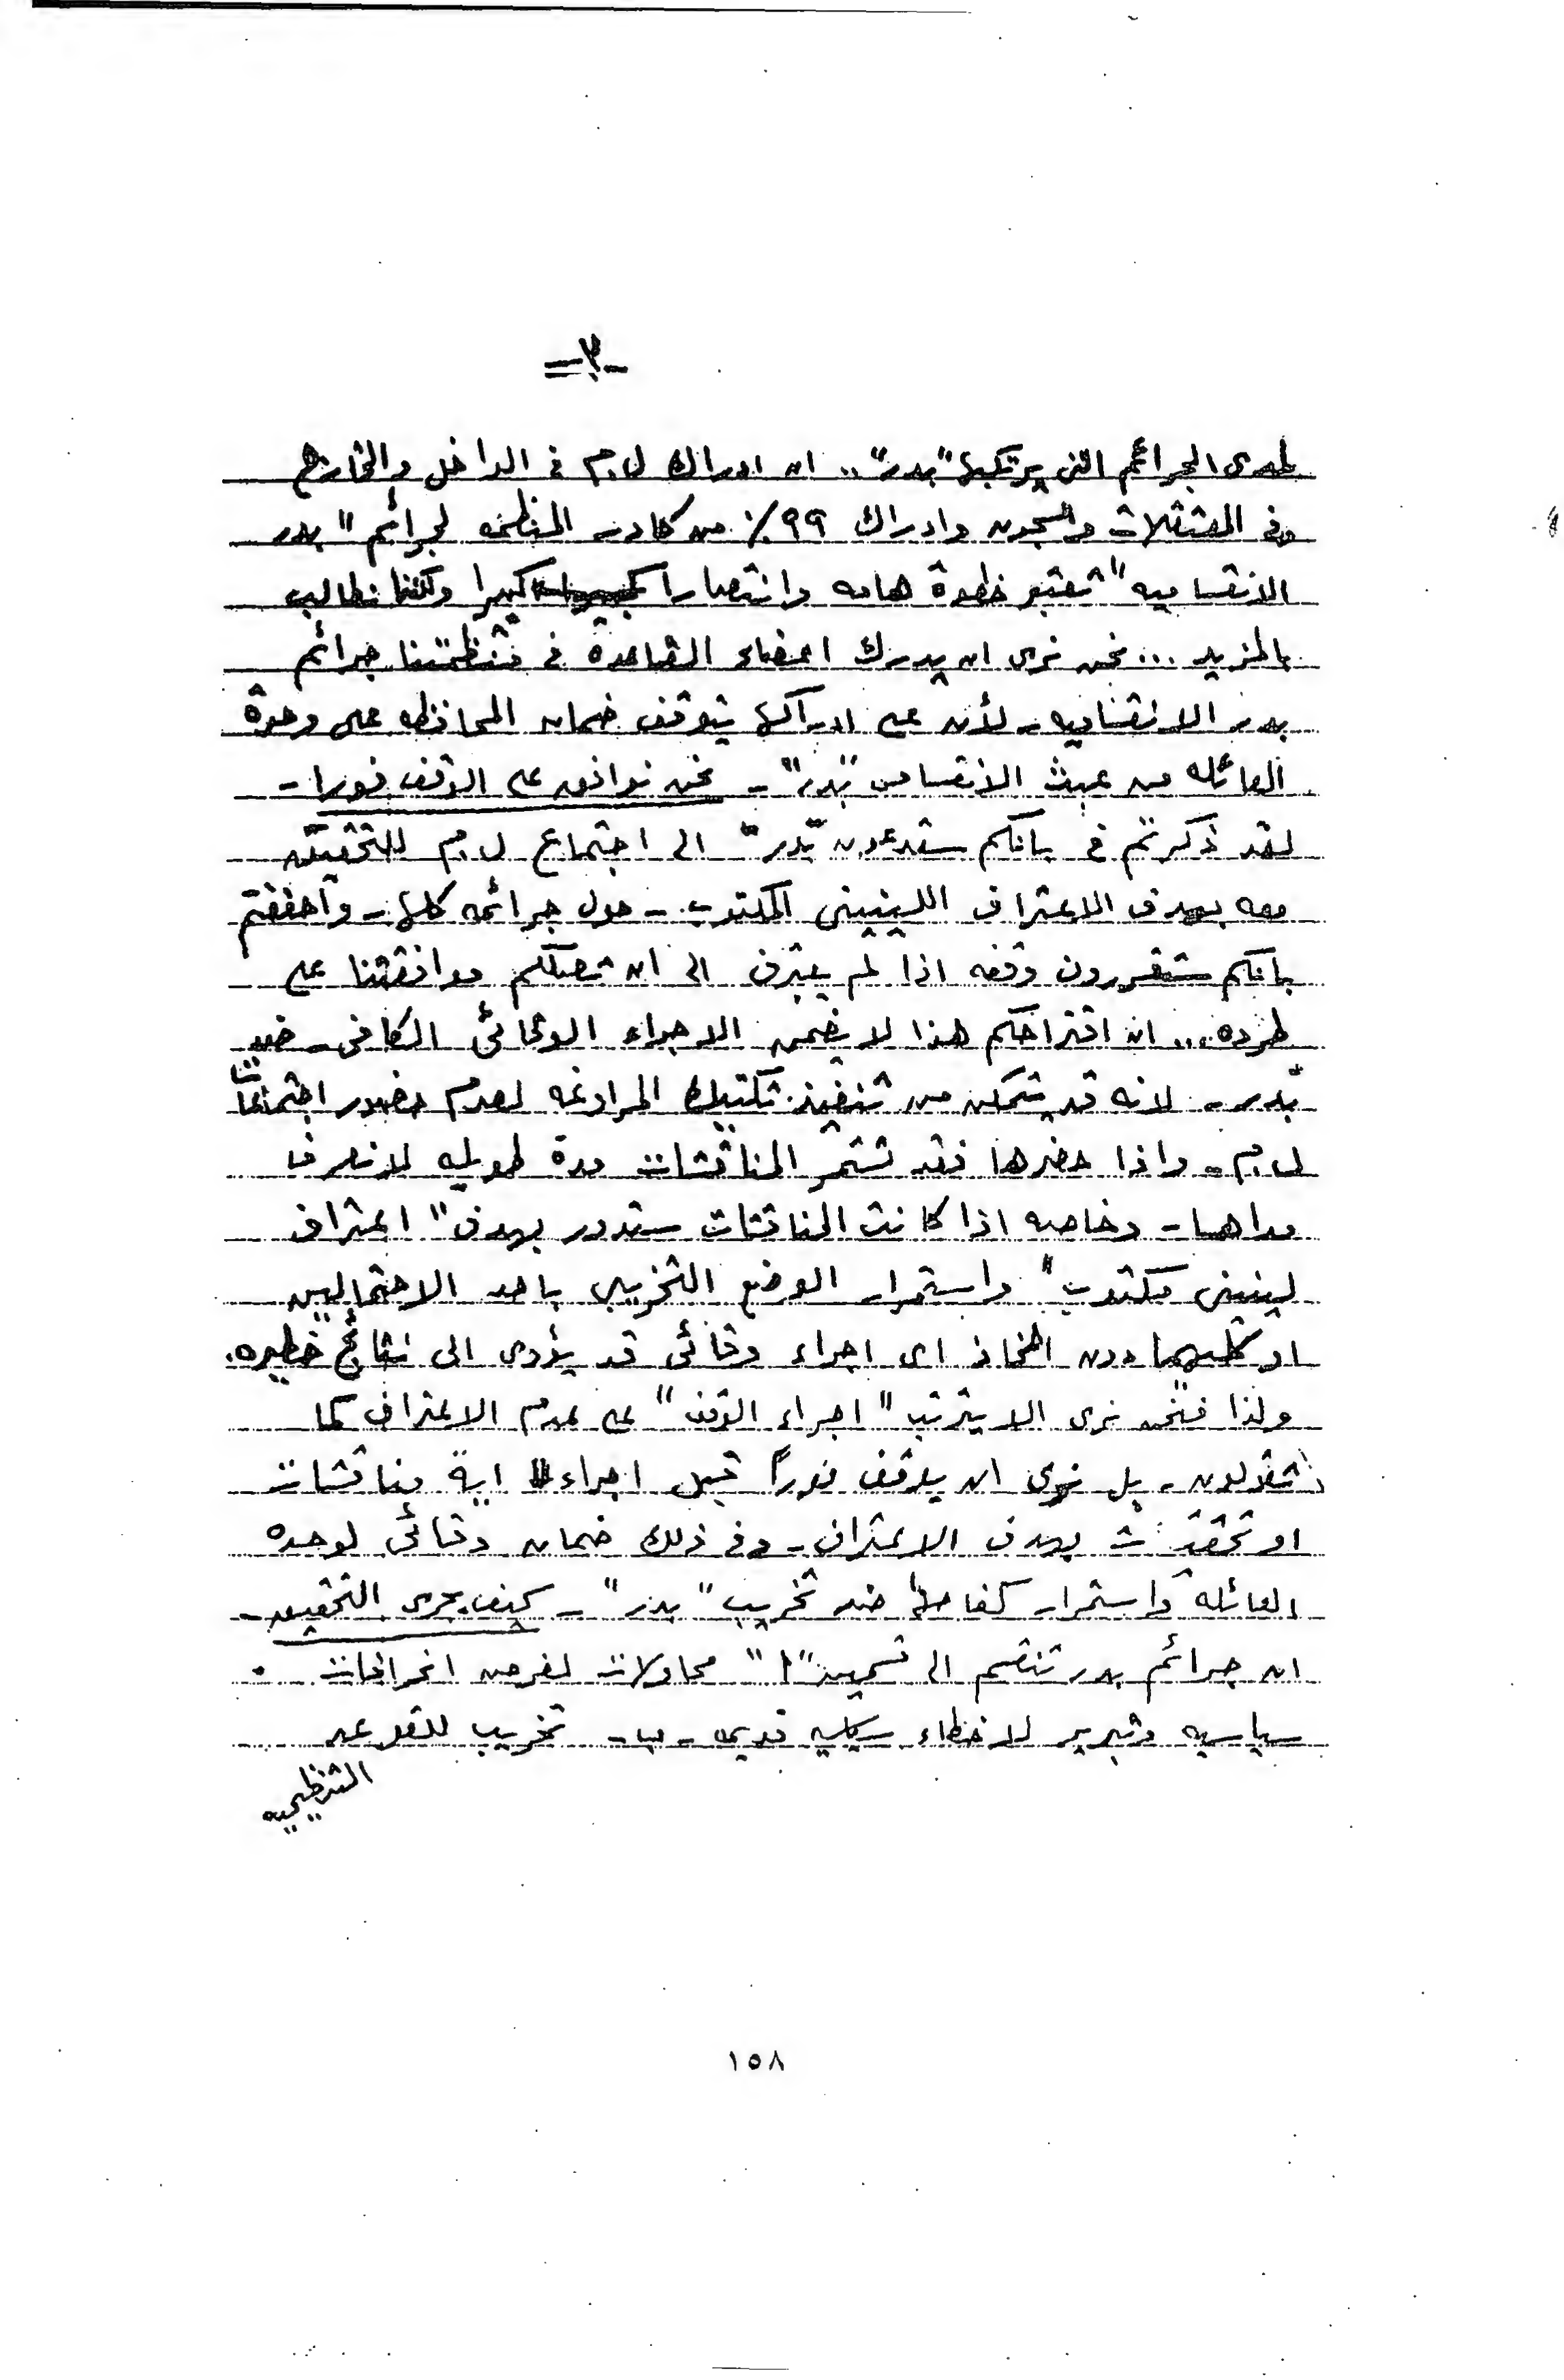 -٣-
لمدى الجرائم التى يرتكبها "بدر" .. ان ادراك ل.م فى الداخل والخارج
وفى المعتقلات والسجون وادراك ٩٩٪ من كادر المنظمه لجرائم "بدر
الانقساميه" تعتبر خطوة هامه وانتصارا كبيرا ولكننا نطالب
بالمزيد ... نحن نرى ان يدرك اعضاء القاعدة فى منظمتنا جرائم
بدر الانقساميه - لأن على ادراكها يتوقف ضمان المحافظه على وحدة
العائله من عبث الانقسامى "بدر" - نحن نوافق على الوقف فورا -
لقد ذكرتم فى بانكم ستدعون "بدر" الى اجتماع ل.م للتحقيق
معه بهدف الاعتراف اللينينى المكتوب - حول جرائمه كلها - واضفتم
بانكم ستقررون وقفه اذا لم يعترف الى ان تصلكم موافقتنا على
طرده ... ان اقتراحكم هذا لا يضمن الاجراء الوقائى الكافى ضد
بدر - لانه قد يتمكن من تنفيذ تكتيك المراوغه لعدم حضور اجتماعات
ل.م - واذا حضرها فقد تستمر المناقشات مدة طويله لا نعرف
مداها - وخاصه اذا كانت المناقشات ستدور بهدف "اعتراف
لينينى مكتوب" واستمرار الوضع التخريبى باحد الاحتمالين
او كليهما دون اتخاذ اى اجراء وقائى قد يؤدى الى نتائج خطيره.
ولذا فنحن نرى الا يترتب "اجراء الوقف" على عدم الاعتراف كما
تقولون - بل نرى ان يوقف فوراً قبل اجراء اية مناقشات
او تحقيقات بهدف الاعتراف - وفى ذلك ضمان وقائى لوحده
العائلة واستمرار كفاحها ضد تخريب "بدر" - كيف يجرى التحقيق -
ان جرائم بدر تنقسم الى قسمين "ا" محاولات لفرض انحرافات
سياسيه وتبرير للاخطاء قديمه - ب - تخريب للقواعد
التنظيميه
١٥٨